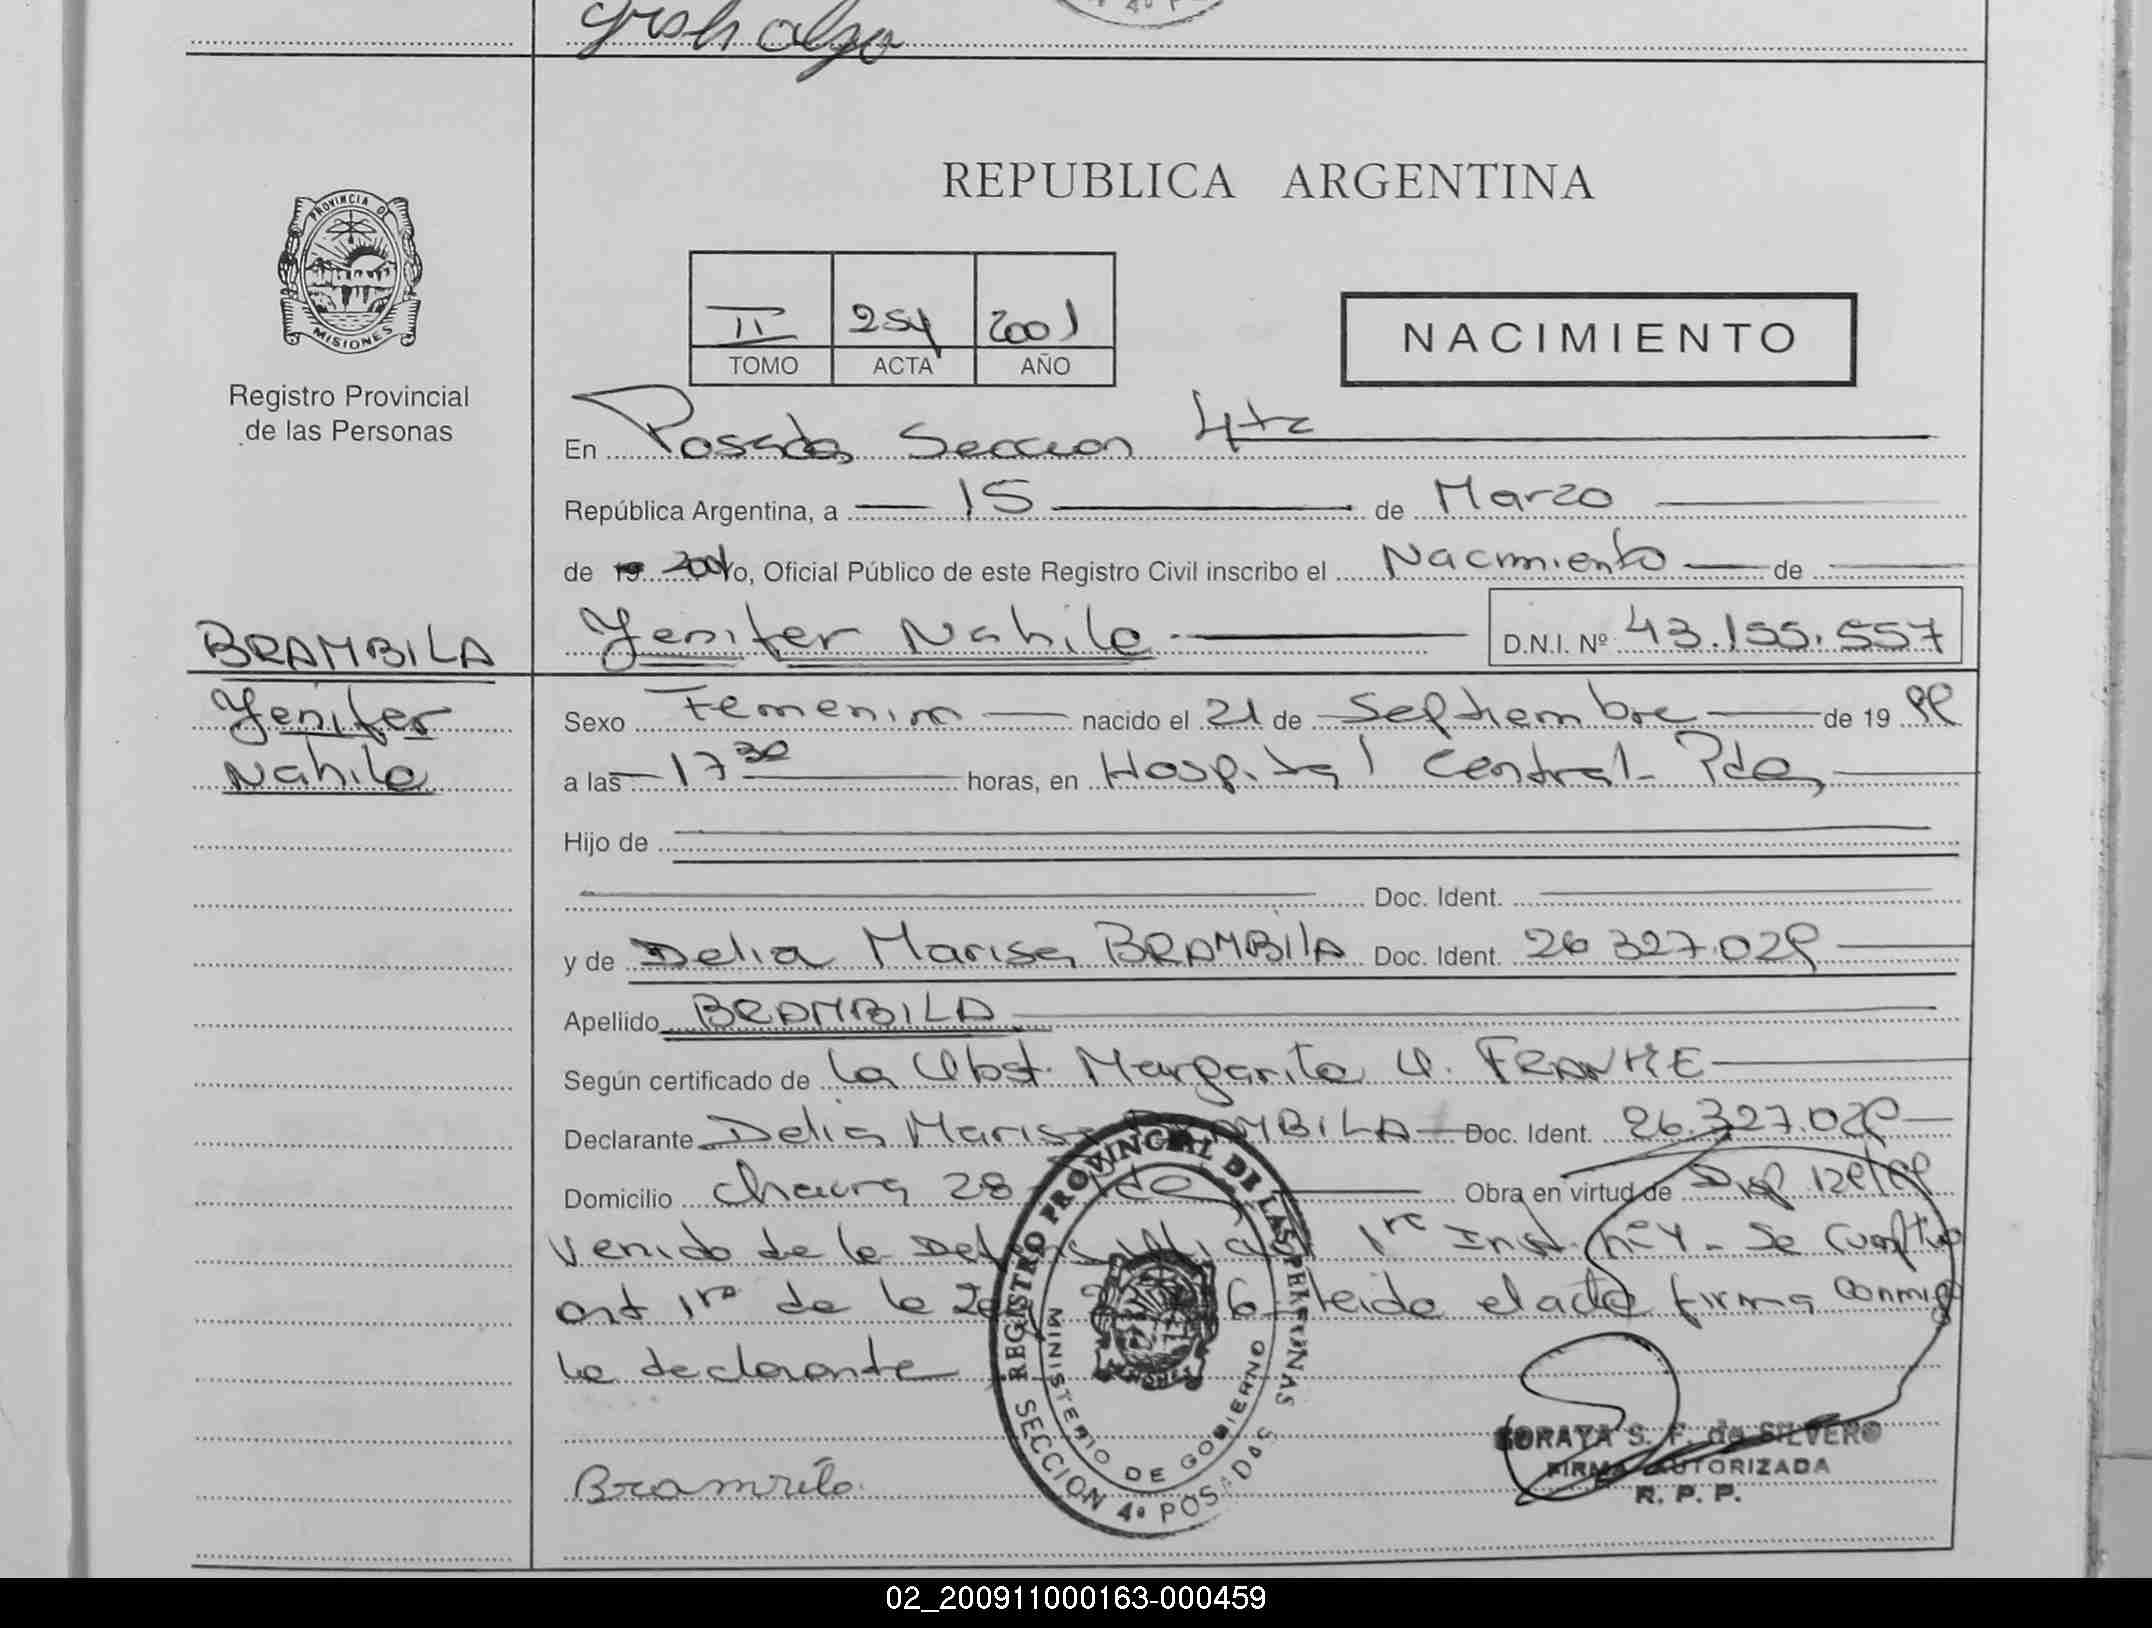 4º P
PROVINCIA DE
MISIONES
Registro Provincial
de las Personas
REPUBLICA ARGENTINA
II 254 2001
TOMO ACTA AÑO
NACIMIENTO
En Posadas Seccion 4ta
República Argentina, a 15 de Marzo
de 19 2001 Yo, Oficial Público de este Registro Civil inscribo el Nacimiento de
BRAMBILA
Yenifer Nahile D.N.I. Nº 43.155.557
Yenifer
Nahile
Sexo Femenino nacido el 21 de Septiembre de 19 99
a las 17 30 horas, en Hospital Central Pdas
Hijo de
Doc. Ident.
y de Delia Marisa BRAMBILA Doc. Ident. 26 327.029
Apellido BRAMBILA
Según certificado de La Obst. Margarita FRANKE
Declarante Delia Marisa BRAMBILA Doc. Ident. 26.327.029
Domicilio chacra 28 Pdas Obra en virtud de Disp 129/99
venido de la 1ra Inst. nº 4 - Se Cumplió
art 1ro de la Leida el acta firma conmigo
la declarante
REGISTRO PROVINCIAL DE LAS PERSONAS
MINISTERIO DE GOBIERNO
SECCION 4º POSADAS
SORAYA S. F. de SILVERO
FIRMA AUTORIZADA
R. P. P.
02_200911000163-000459